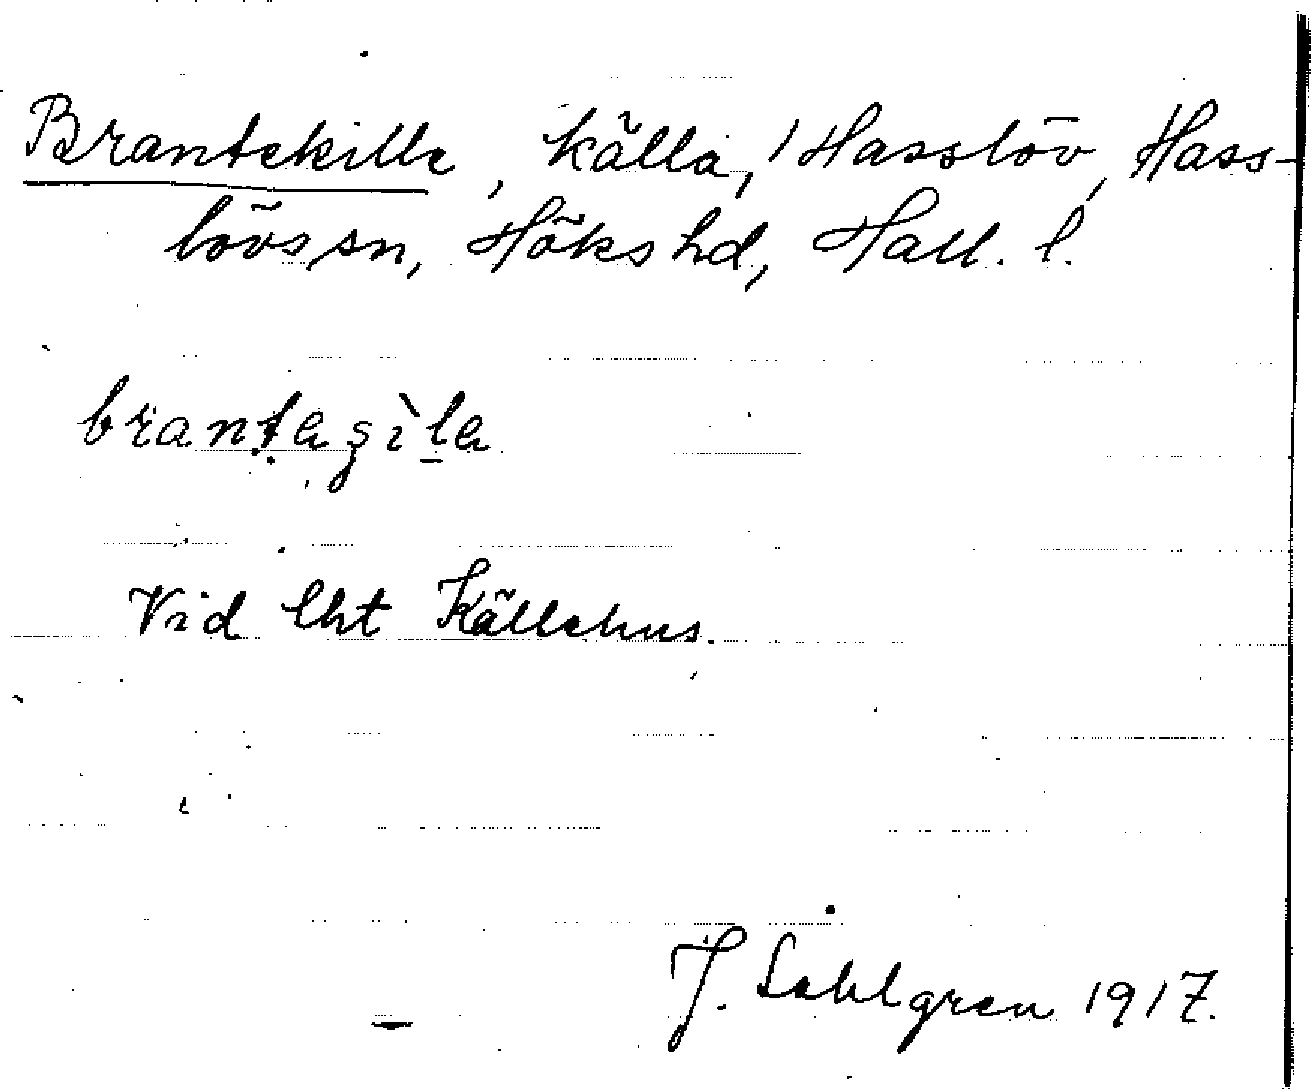 Brantekille, källa, 1 Hasslöv, Hass-
lövs sn, Höks hd, Hall. l.
brantaʂìla
Vid lht Källehus.
J. Sahlgren 1917.